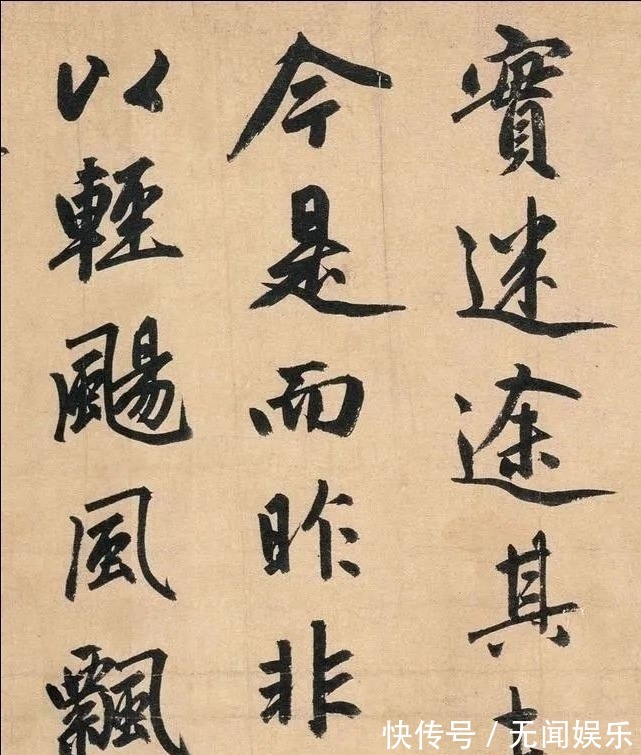 實迷途其
今是而昨非
以輕颺風飄
快传号/无闻娱乐